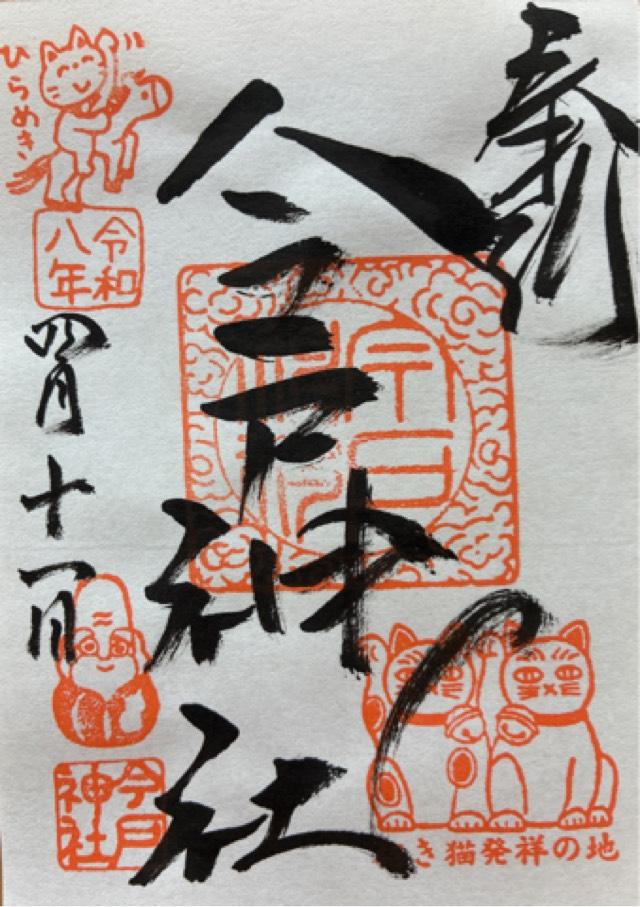 奉拝
今戸神社
今戸
神社
き猫発祥の地
ひらめき
令和
八年
四月十一日
今戸
神社